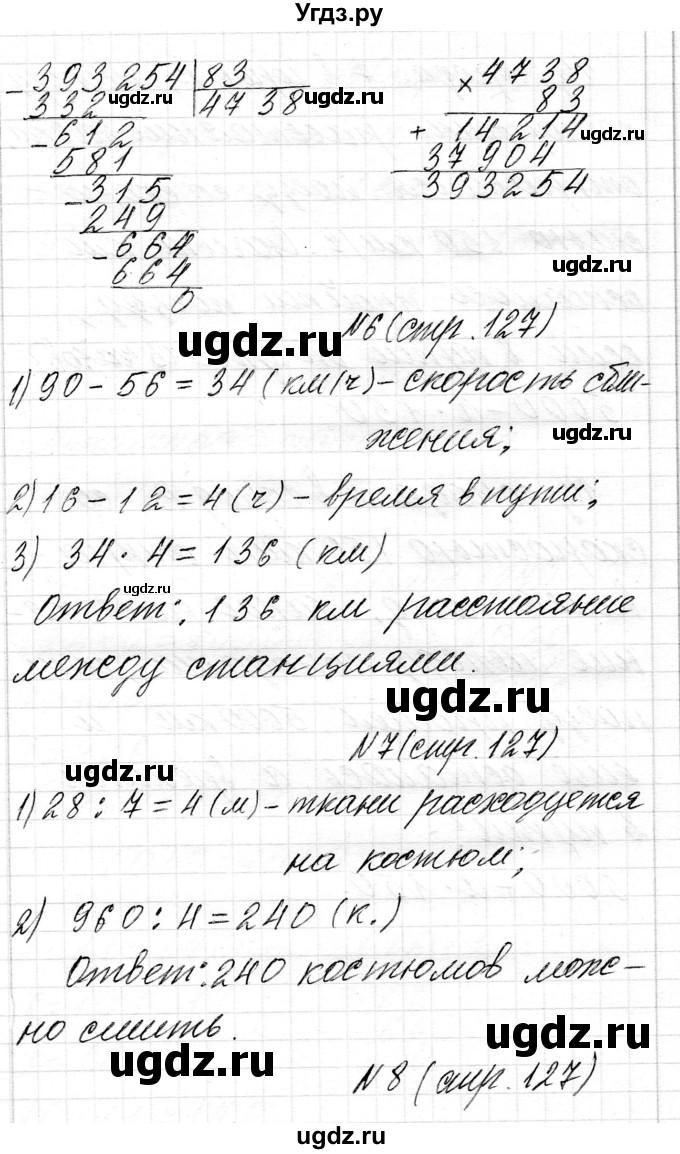 Угдз.ру
- 393254 | 83
332 | 4738
ugdz.ru ugdz.ru
- 612
581
- 315
249
- 664
664
0
× 4738
83
+ 14214
ugdz.ru
37904
393254
ugdz.ru
ugdz.ru
№6 (стр. 127)
1) 90 - 56 = 34 (км/ч) - скорость сбли-
жения;
ugdz.ru
2) 16 - 12 = 4 (ч) - время в пути;
3) 34 · 4 = 136 (км)
ugdz.ru
Ответ: 136 км расстояние
между станциями.
ugdz.ru
№7 (стр. 127)
ugdz.ru
1) 28 : 7 = 4 (м) - ткани расходуется
на костюм;
2) 960 : 4 = 240 (к.)
Ответ: 240 костюмов мож-
но сшить.
ugdz.ru
ugdz.ru
№8 (стр. 127)
ugdz.ru